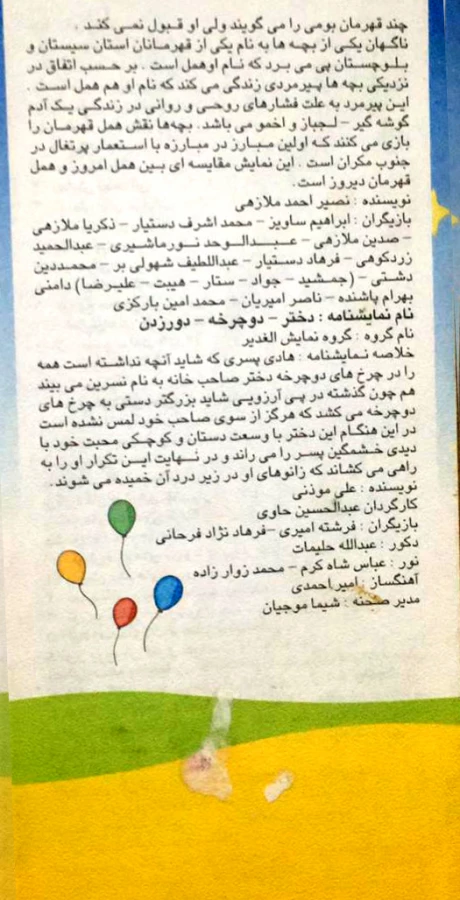 چند قهرمان بومی را می گویند ولی او قبول نمی کند .
ناگهان یکی از بچه ها به نام یکی از قهرمانان استان سیستان و
بلوچستان پی می برد که نام اوهمل است . بر حسب اتفاق در
نزدیکی بچه ها پیرمردی زندگی می کند که نام او هم همل است .
این پیرمرد به علت فشارهای روحی و روانی در زندگی یک آدم
گوشه گیر - لجباز و اخمو می باشد . بچه‌ها نقش همل قهرمان را
بازی می کنند که اولین مبارز در مبارزه با استعمار پرتغال در
جنوب مکران است . این نمایش مقایسه ای بین همل امروز و همل
قهرمان دیروز است .
نویسنده : نصیر احمد ملازهی
بازیگران : ابراهیم ساویز - محمد اشرف دستیار - ذکریا ملازهی
- صدین ملازهی - عبدالوحد نورماشیری - عبدالحمید
زردکوهی - فرهاد دستیار - عبداللطیف شهولی بر - محمددین
دشتی - (جمشید - جواد - ستار - هیبت - علیرضا) دامنی
بهرام پاشنده - ناصر امیریان - محمد امین بارکزی
نام نمایشنامه : دختر - دوچرخه - دورزدن
نام گروه : گروه نمایش الغدیر
خلاصه نمایشنامه : هادی پسری که شاید آنچه نداشته است همه
را در چرخ های دوچرخه دختر صاحب خانه به نام نسرین می بیند
هم چون گذشته در پی آرزویی شاید بزرگتر دستی به چرخ های
دوچرخه می کشد که هرگز از سوی صاحب خود لمس نشده است
در این هنگام این دختر با وسعت دستان و کوچکی محبت خود با
دیدی خشمگین پسر را می راند و در نهایت این تکرار او را به
راهی می کشاند که زانوهای او در زیر درد آن خمیده می شوند .
نویسنده : علی موذنی
کارگردان عبدالحسین حاوی
بازیگران : فرشته امیری -فرهاد نژاد فرحانی
دکور : عبدالله حلیمات
نور : عباس شاه کرم - محمد زوار زاده
آهنگساز : امیر احمدی
مدیر صحنه : شیما موجیان